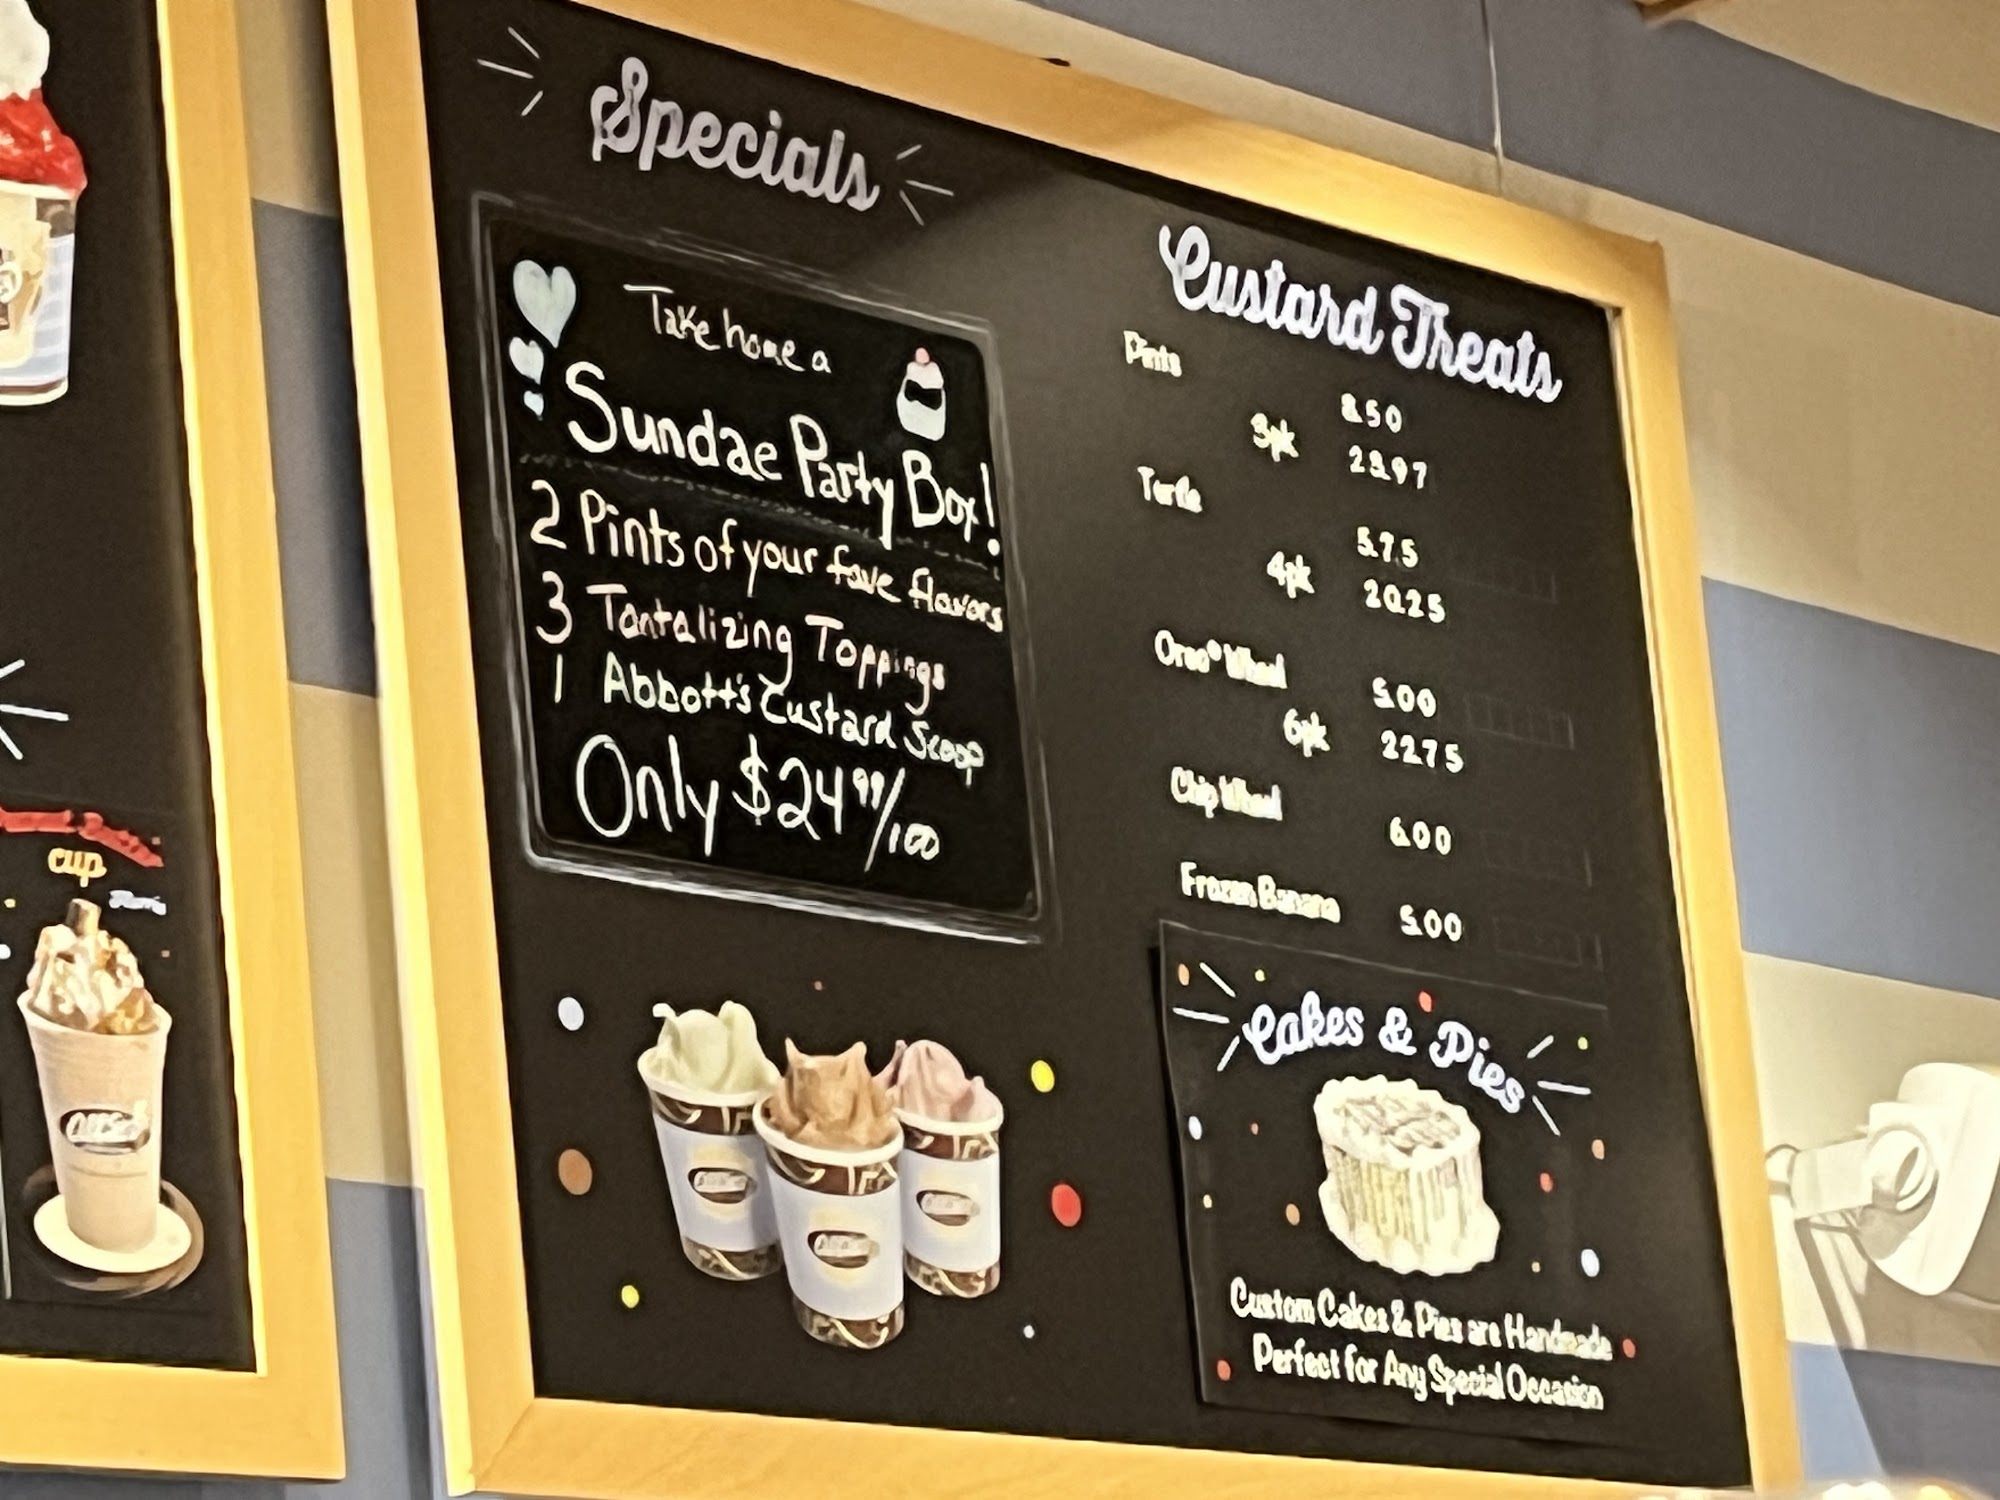 Specials
Take home a
Sundae Party Box!
2 Pints of your fave flavors
3 Tantalizing Toppings
1 Abbott's Custard Scoop
Only $24 99/100
Custard Treats
Pints
8.50
3pk 23.97
Turtle
5.75
4pk 20.25
Oreo® Wheel
5.00
6pk 22.75
Chip Wheel
6.00
Frozen Banana 5.00
Cakes & Pies
Custom Cakes & Pies are Handmade
Perfect for Any Special Occasion
cup